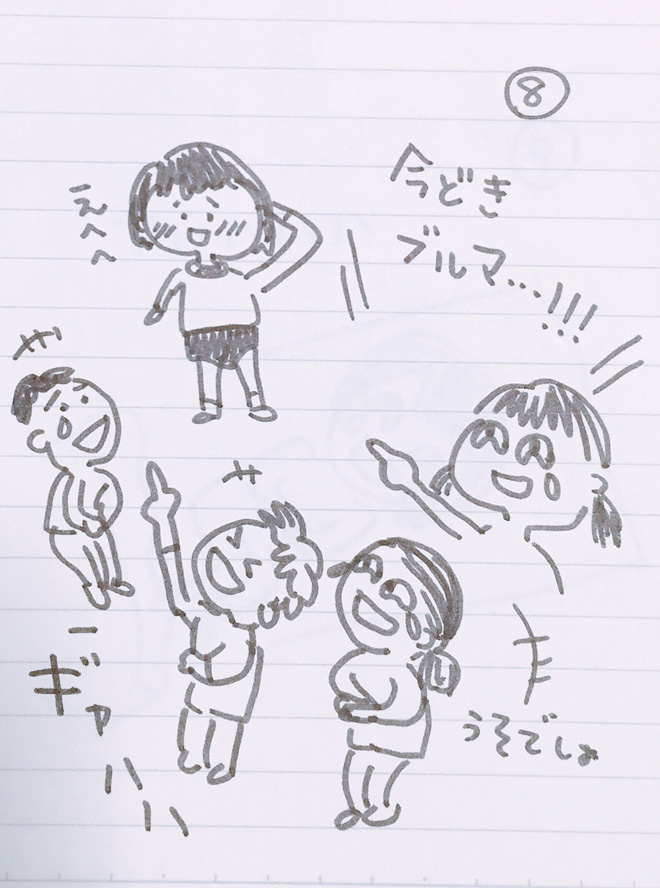 ⑧
今どき
ブルマ…!!!
えへへ
うそでしょ
ギャハハ